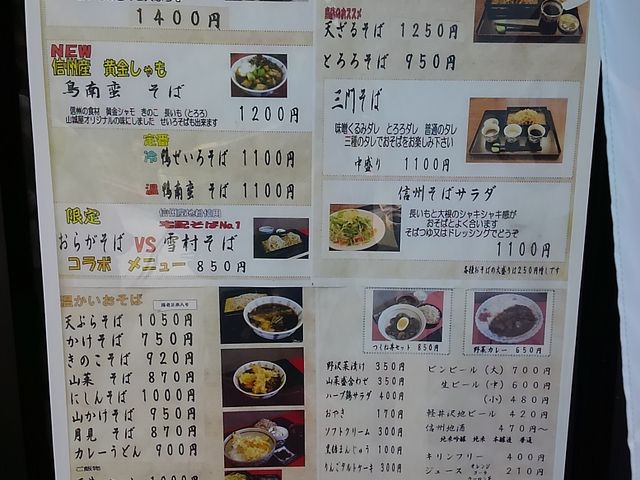 1400円
NEW
信州産 黄金しゃも
鳥南蛮 そば
信州の食材 黄金シャモ きのこ 長いも(とろろ)
山城屋オリジナルの味にしました せいろそばも出来ます
1200円
定番
冷 鴨せいろそば 1100円
温 鴨南蛮 そば 1100円
限定
信州産地粉使用
宅配そばNo.1
おらがそば VS 雪村そば
コラボ メニュー 850円
温かいおそば
天ぷらそば 1050円
かけそば 750円
きのこそば 920円
山菜 そば 870円
にしんそば 1000円
山かけそば 950円
月見 そば 870円
カレーうどん 900円
ご飯物
天ざるそば 1250円
とろろそば 950円
三門そば
味噌くるみダレ とろろダレ 普通のタレ
三種のタレでおそばをお楽しみ下さい
中盛り 1100円
信州そばサラダ
長いもと大根のシャキシャキ感が
おそばとよく合います
そばつゆ又はドレッシングでどうぞ
1100円
各種おそばの大盛りは250円増しです
つくね亭セット 850円
野菜カレー 650円
野沢菜漬け 350円
山菜盛合わせ 350円
ハーブ鶏サラダ 400円
おやき 170円
ソフトクリーム 300円
黒糖まんじゅう 100円
りんごタルトケーキ 300円
ビンビール (大) 700円
生ビール (中) 600円
(小) 480円
軽井沢地ビール 420円
信州地酒 470円~
純米吟醸 純米 本醸造 普通
キリンフリー 400円
ジュース オレンジ コーラ 210円